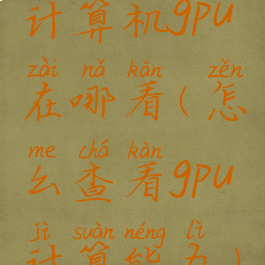 计算机gpu
zài nǎ kàn zěn
在哪看(怎
me chá kàn
么查看gpu
jì suàn néng lì
计算能力)